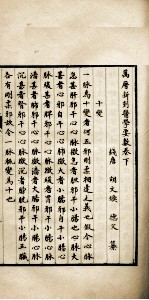 錢唐 胡文煥 德父 纂
十變
一脉為十變者何也五邪剛柔相逢之意也假令心脉
急甚者肝邪干心也心脉微急者膽邪干小腸也心脉大
甚者心邪自干心也心脉微大者小腸邪自干小腸也心
脉緩甚者脾邪干心也心脉微緩者胃邪干小腸也心脉
濇甚者肺邪干心也心脉微濇者大腸邪干小腸也心脉
沉甚者腎邪干心也心脉微沉者膀胱邪干小腸也五臟
各有剛柔邪故令一脉輒變為十也